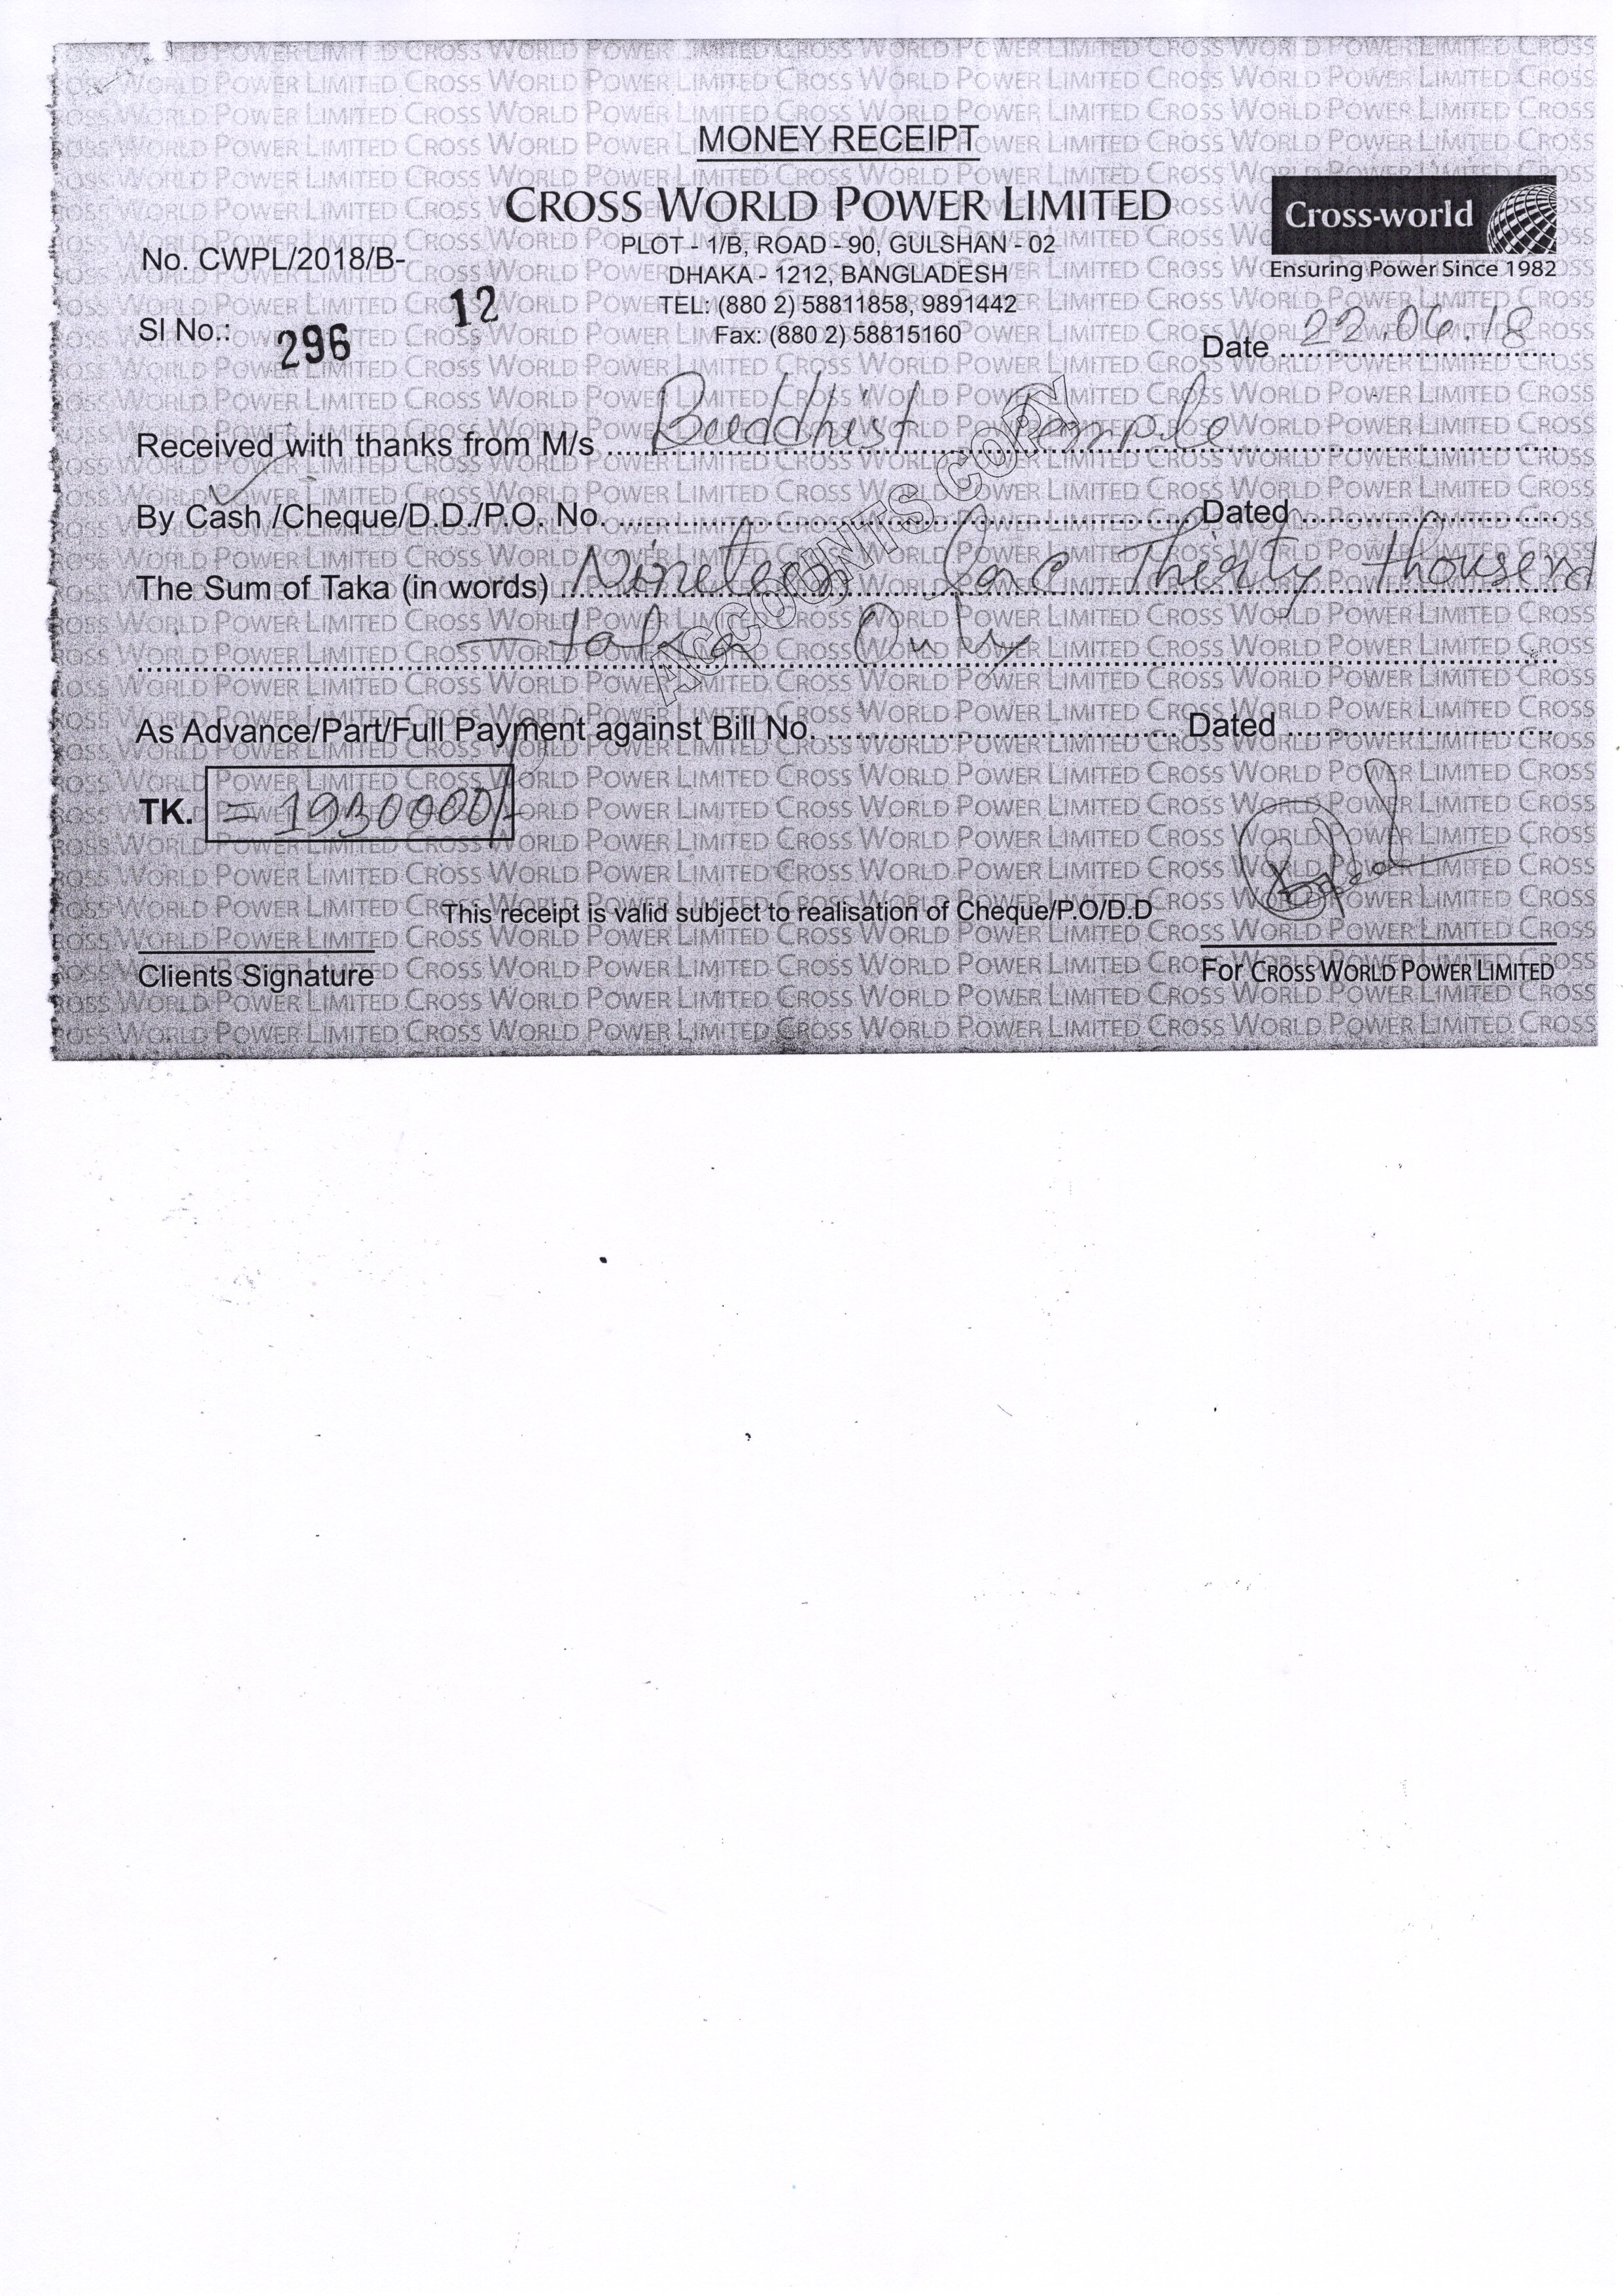 MONEY RECEIPT
CROSS WORLD POWER LIMITED
PLOT - 1/B, ROAD - 90, GULSHAN - 02
DHAKA - 1212, BANGLADESH
TEL: (880 2) 58811858, 9891442
Fax: (880 2) 58815160
Cross-world
Ensuring Power Since 1982
No. CWPL/2018/B- 12
Sl No.: 296
Date 22.06.18
Received with thanks from M/s Buddhist Temple
By Cash /Cheque/D.D./P.O. No. Dated
The Sum of Taka (in words) Nineteen lac Thirty thousend
taka Only
ACCOUNTS COPY
As Advance/Part/Full Payment against Bill No. Dated
TK. = 1930000/-
This receipt is valid subject to realisation of Cheque/P.O/D.D
Clients Signature
For CROSS WORLD POWER LIMITED